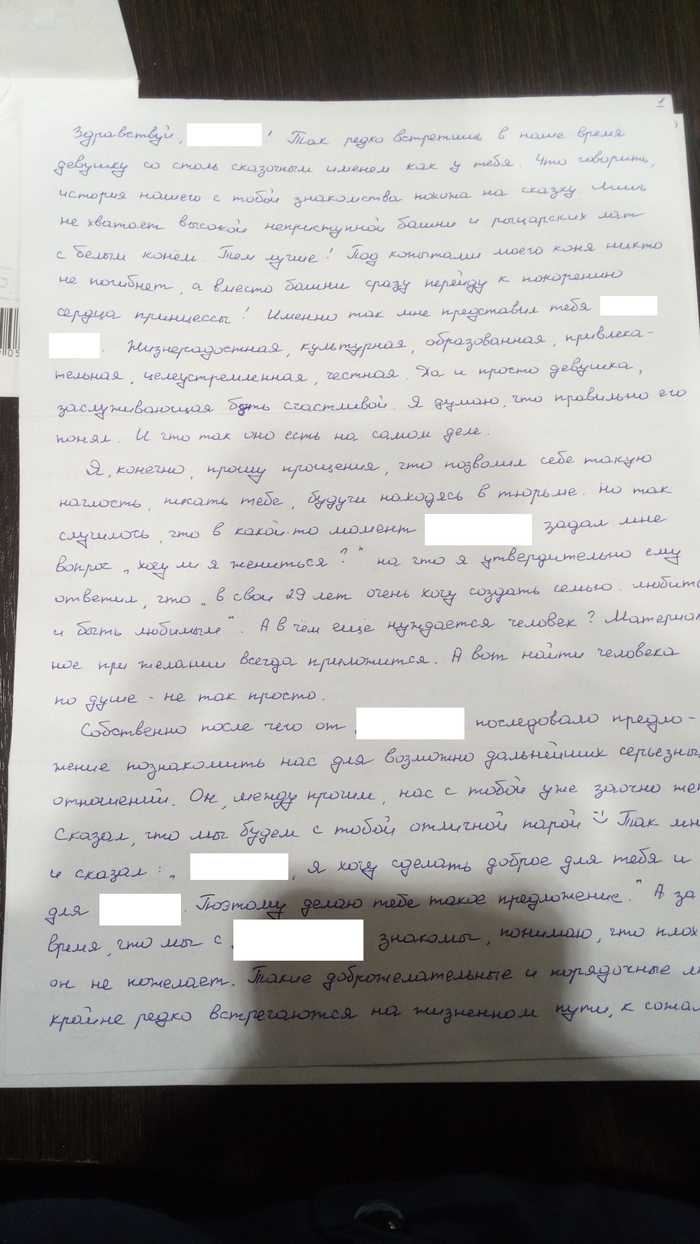 1
Здравствуй, ! Так редко встретишь в наше время
девушку со столь сказочным именем как у тебя. Что говорить,
история нашего с тобой знакомства похожа на сказку. Лишь
не хватает высокой неприступной башни и рыцарских лат
с белым конём. Тем лучше! Под копытами моего коня никто
не погибнет, а вместо башни сразу перейду к покорению
сердца принцессы! Именно так мне представил тебя
. Жизнерадостная, культурная, образованная, привлека-
тельная, целеустремленная, честная. Да и просто девушка,
заслуживающая быть счастливой. Я думаю, что правильно его
понял. И что так оно есть на самом деле.
Я, конечно, прошу прощения, что позволил себе такую
наглость, писать тебе, будучи находясь в тюрьме. Но так
случилось, что в какой-то момент задал мне
вопрос „хочу ли я жениться?" на что я утвердительно ему
ответил, что „в свои 29 лет очень хочу создать семью. любить
и быть любимым". А в чём ещё нуждается человек? Материал
ное при желании всегда приложится. А вот найти человека
по душе - не так просто.
Собственно после чего от последовало предло-
жение познакомить нас для возможно дальнейших серьезны
отношений. Он, между прочим, нас с тобой уже заочно жен
Сказал, что мы будем с тобой отличной парой :) Так мн
и сказал: „ , я хочу сделать доброе для тебя и
для . Поэтому делаю тебе такое предложение." А за
время, что мы с знакомы, понимаю, что плох
он не пожелает. Такие доброжелательные и порядочные лю
крайне редко встречаются на жизненном пути, к сожал